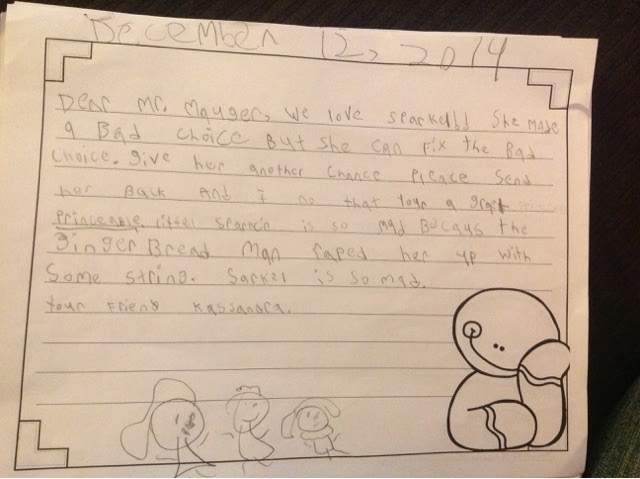 December 12, 2014
Dear Mr. Mauger, we love Sparkel!! She made
a Bad choice But she can fix the Bad
choice. give her another chance Pleace send
her Back And I no that your a grat
Princeable. littel sparkel is so mad Becays the
ginger Bread Man raped her up with
Some string. Sarkel is so mad.
Your Friend Kassandra.